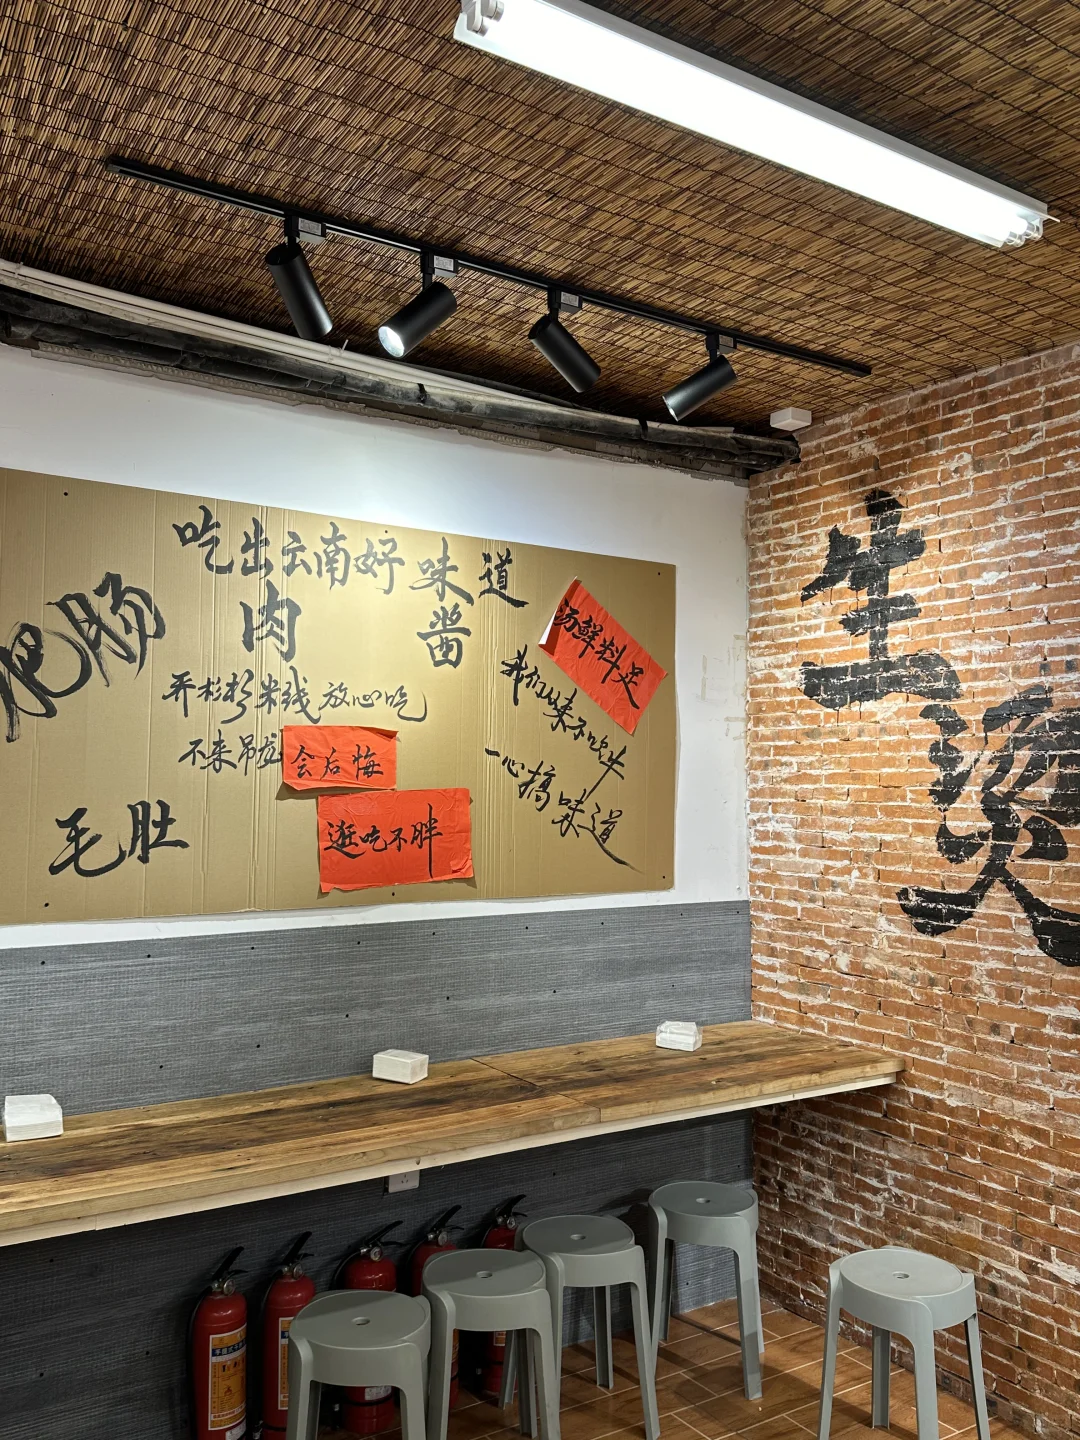 吃出云南好味道
肉 酱
肥肠
米线 放心吃
不来吊龙会后悔
毛肚
逛吃不胖
汤鲜料足
我们从来不吹牛
一心搞味道
生烫